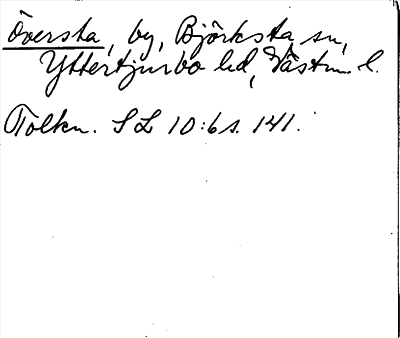 Översta, by, Björksta sn,
Yttertjurbo hd, Västm. l.
Tolkn. SL 10:6 s. 141.